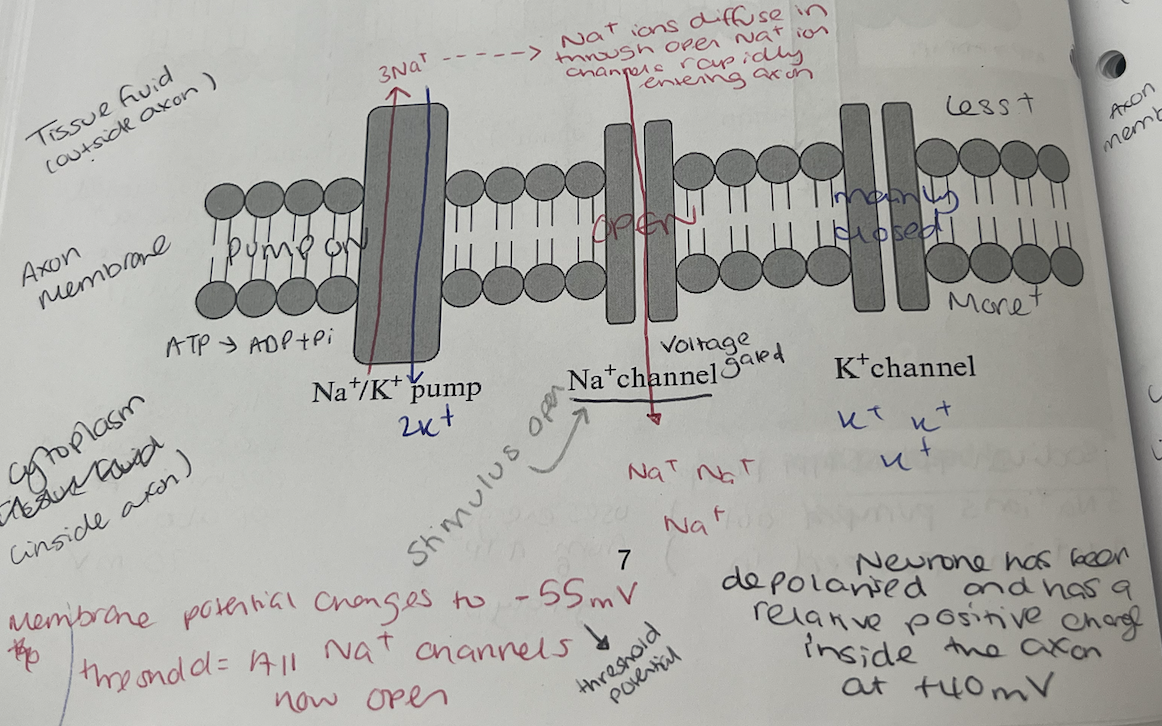 Na⁺ ions diffuse in
through open Na⁺ ion
channels rapidly
entering axon
3Na⁺
Tissue fluid
(outside axon)
Less +
Axon
memb
Axon
membrane
pump on
OPEN
mainly
closed
More +
ATP → ADP + Pi
Voltage
gated
Na⁺/K⁺ pump
Na⁺channel
K⁺channel
2K⁺
K⁺ K⁺
K⁺
Stimulus open
cytoplasm
(inside axon)
Na⁺ Na⁺
Na⁺
7
Membrane potential changes to -55mV
threshold = All Na⁺ channels
now open
threshold
potential
Neurone has been
depolarised and has a
relative positive charge
inside the axon
at +40mV